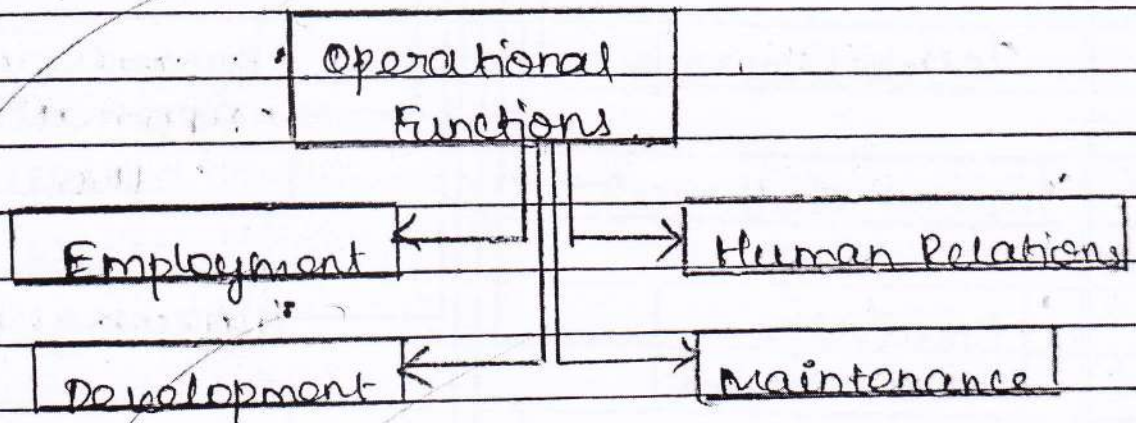 Operational
Functions.
Employment
Human Relations
Development
Maintenance